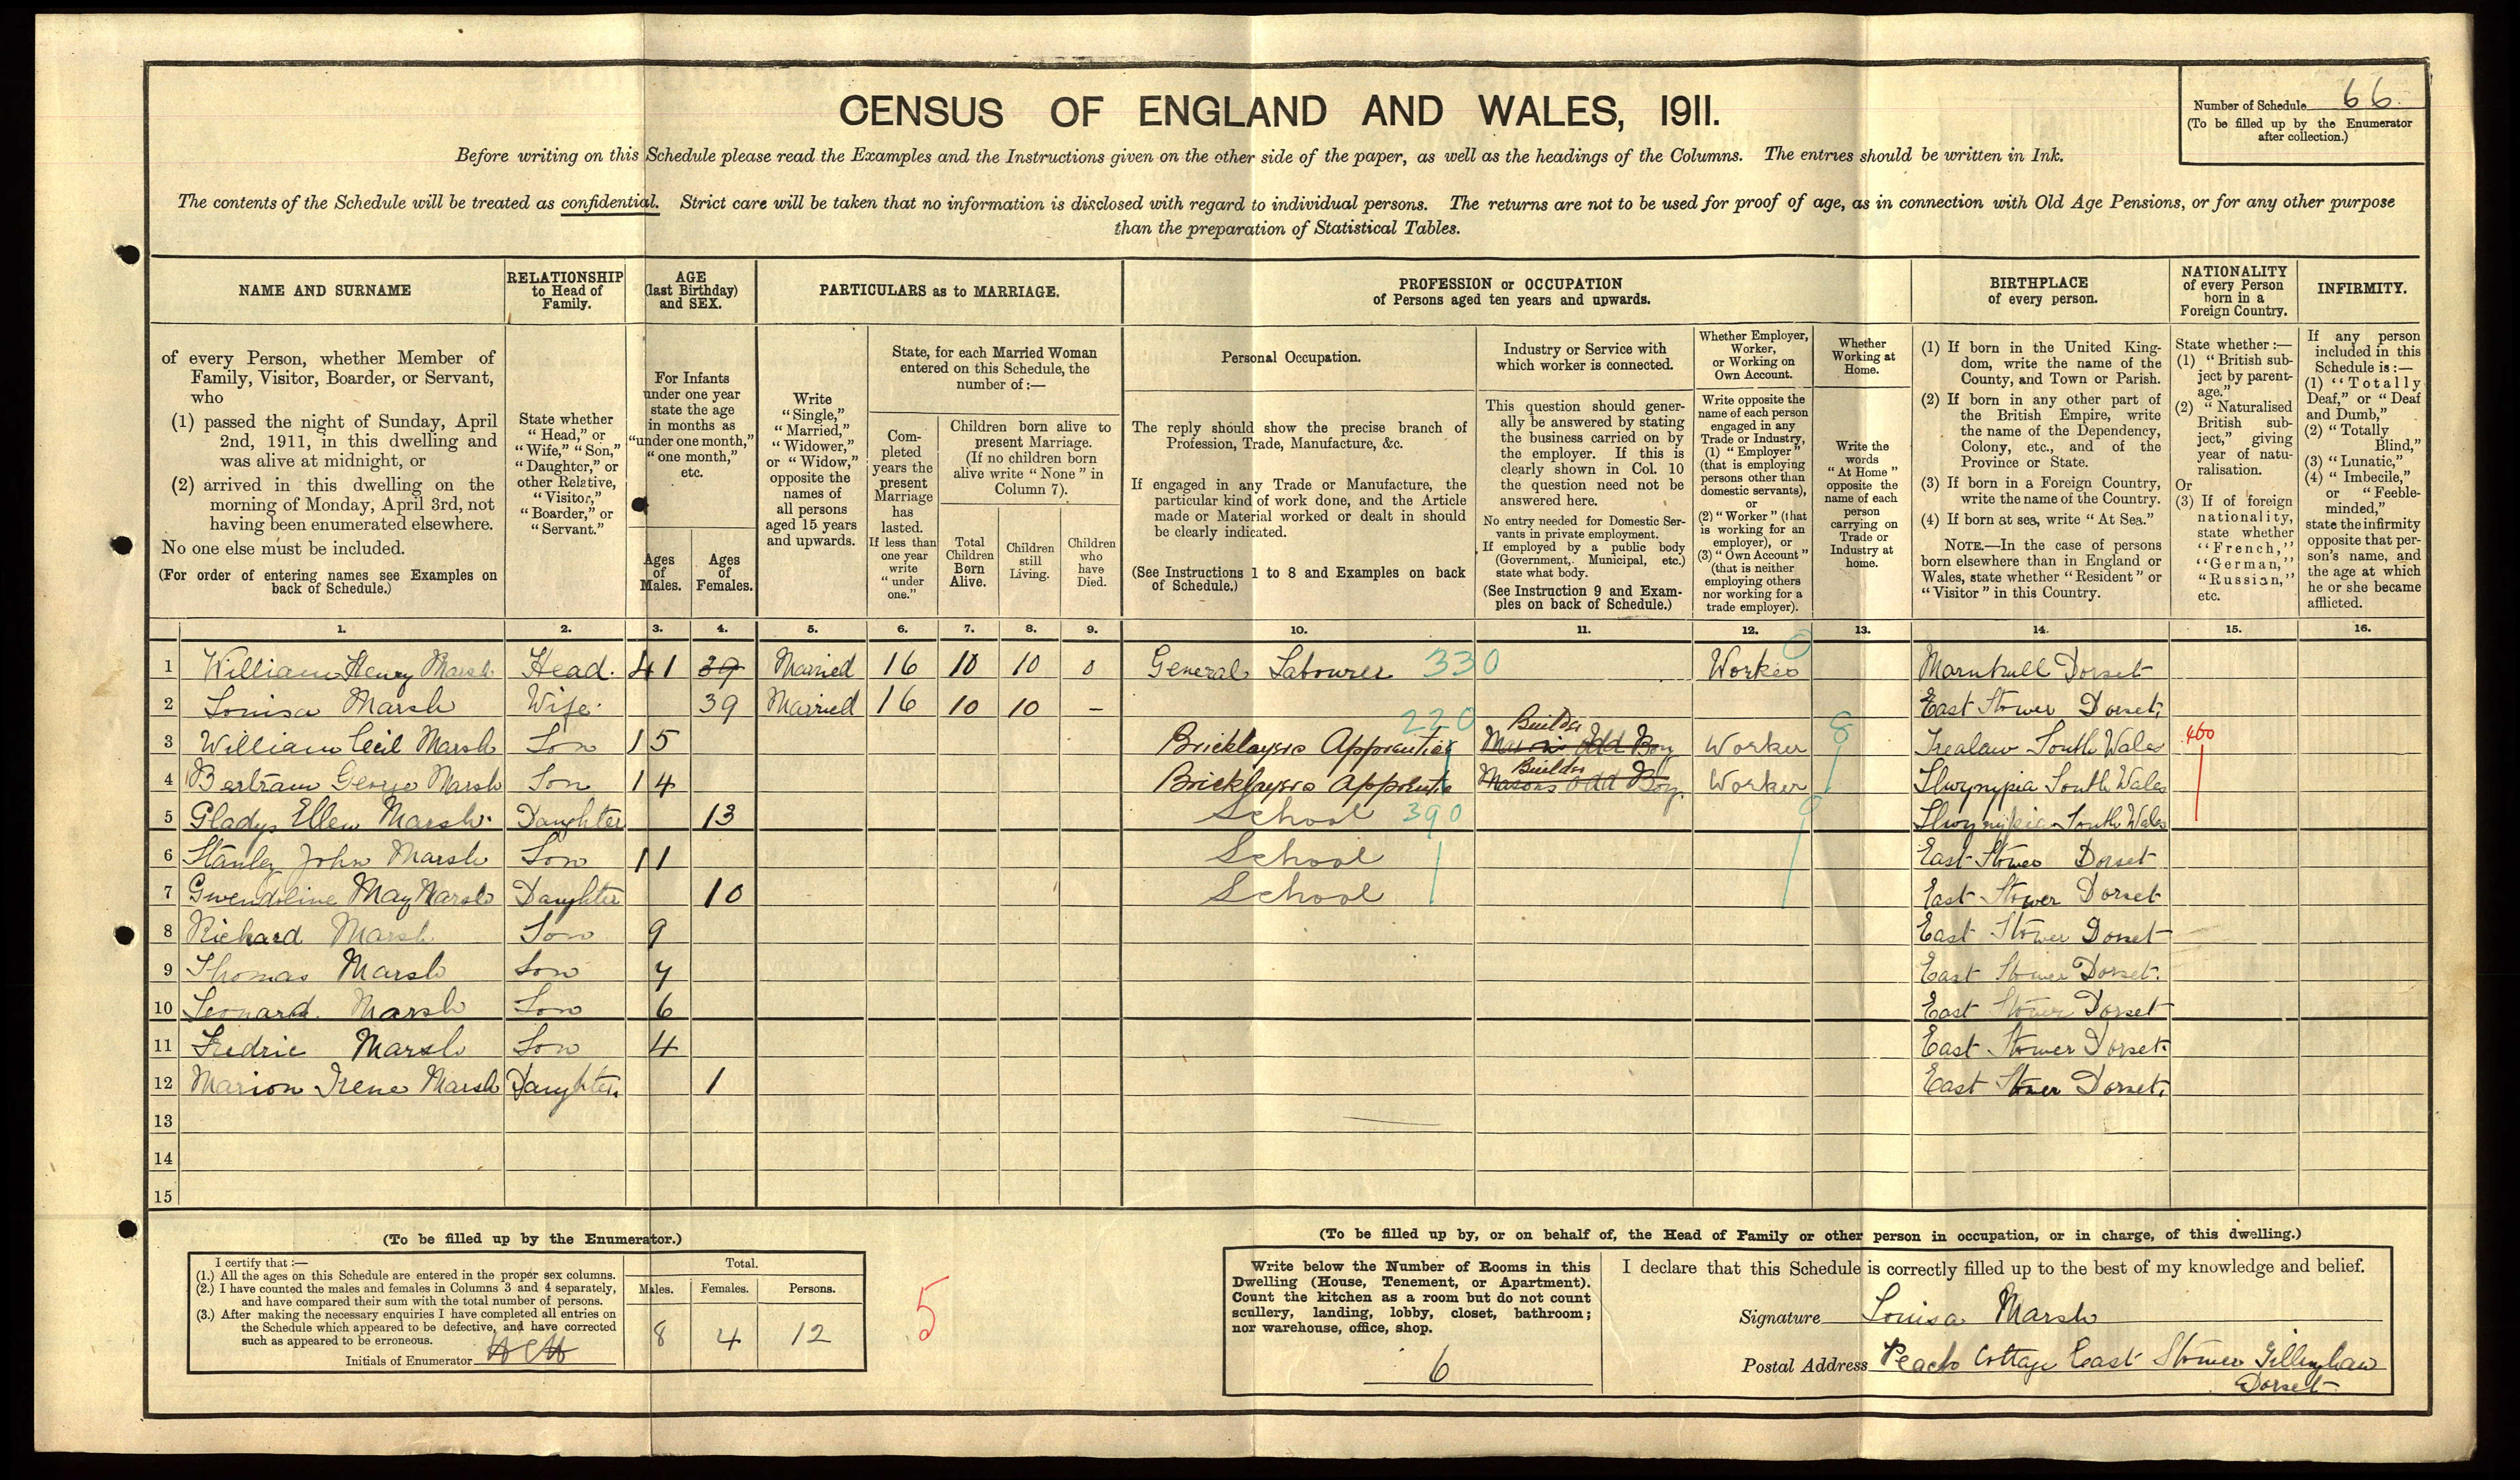 CENSUS OF ENGLAND AND WALES, 1911.
Number of Schedule 66
(To be filled up by the Enumerator
after collection.)
Before writing on this Schedule please read the Examples and the Instructions given on the other side of the paper, as well as the headings of the Columns. The entries should be written in Ink.
The contents of the Schedule will be treated as confidential. Strict care will be taken that no information is disclosed with regard to individual persons. The returns are not to be used for proof of age, as in connection with Old Age Pensions, or for any other purpose
than the preparation of Statistical Tables.
NAME AND SURNAME
of every Person, whether Member of
Family, Visitor, Boarder, or Servant,
who
(1) passed the night of Sunday, April
2nd, 1911, in this dwelling and
was alive at midnight, or
(2) arrived in this dwelling on the
morning of Monday, April 3rd, not
having been enumerated elsewhere.
No one else must be included.
(For order of entering names see Examples on
back of Schedule.)
RELATIONSHIP
to Head of
Family.
State whether
"Head," or
"Wife," "Son,"
"Daughter," or
other Relative,
"Visitor,"
"Boarder," or
"Servant."
AGE
(last Birthday)
and SEX.
For Infants
under one year
state the age
in months as
"under one month,"
"one month,"
etc.
Ages
of
Males.
Ages
of
Females.
PARTICULARS as to MARRIAGE.
Write
"Single,"
"Married,"
"Widower,"
or "Widow,"
opposite the
names of
all persons
aged 15 years
and upwards.
State, for each Married Woman
entered on this Schedule, the
number of:—
Com-
pleted
years the
present
Marriage
has
lasted.
If less than
one year
write
"under
one."
Children born alive to
present Marriage.
(If no children born
alive write "None" in
Column 7).
Total
Children
Born
Alive.
Children
still
Living.
Children
who
have
Died.
PROFESSION or OCCUPATION
of Persons aged ten years and upwards.
Personal Occupation.
The reply should show the precise branch of
Profession, Trade, Manufacture, &c.
If engaged in any Trade or Manufacture, the
particular kind of work done, and the Article
made or Material worked or dealt in should
be clearly indicated.
(See Instructions 1 to 8 and Examples on back
of Schedule.)
Industry or Service with
which worker is connected.
This question should gener-
ally be answered by stating
the business carried on by
the employer. If this is
clearly shown in Col. 10
the question need not be
answered here.
No entry needed for Domestic Ser-
vants in private employment.
If employed by a public body
(Government, Municipal, etc.)
state what body.
(See Instruction 9 and Exam-
ples on back of Schedule.)
Whether Employer,
Worker,
or Working on
Own Account.
Write opposite the
name of each person
engaged in any
Trade or Industry,
(1) "Employer"
(that is employing
persons other than
domestic servants),
or
(2) "Worker" (that
is working for an
employer), or
(3) "Own Account"
(that is neither
employing others
nor working for a
trade employer).
Whether
Working at
Home.
Write the
words
"At Home"
opposite the
name of each
person
carrying on
Trade or
Industry at
home.
BIRTHPLACE
of every person.
(1) If born in the United King-
dom, write the name of the
County, and Town or Parish.
(2) If born in any other part of
the British Empire, write
the name of the Dependency,
Colony, etc., and of the
Province or State.
(3) If born in a Foreign Country,
write the name of the Country.
(4) If born at sea, write "At Sea."
NOTE.—In the case of persons
born elsewhere than in England or
Wales, state whether "Resident" or
"Visitor" in this Country.
NATIONALITY
of every Person
born in a
Foreign Country.
State whether:—
(1) "British sub-
ject by parent-
age."
(2) "Naturalised
British sub-
ject," giving
year of natu-
ralisation.
Or
(3) If of foreign
nationality,
state whether
"French,"
"German,"
"Russian,"
etc.
INFIRMITY.
If any person
included in this
Schedule is:—
(1) "Totally
Deaf," or "Deaf
and Dumb,"
(2) "Totally
Blind,"
(3) "Lunatic,"
(4) "Imbecile,"
or "Feeble-
minded,"
state the infirmity
opposite that per-
son's name, and
the age at which
he or she became
afflicted.
1. 2. 3. 4. 5. 6. 7. 8. 9. 10. 11. 12. 13. 14. 15. 16.
1 William Henry Marsh Head. 41 39 Married 16 10 10 0 General Labourer 330 Worker 0 Marnhull Dorset
2 Louisa Marsh Wife 39 Married 16 10 10 – East Stower Dorset.
220 Builder 8
3 William Cecil Marsh Son 15 Bricklayers Apprentice Masons Odd Boy Worker Trealaw South Wales 460
Builder
4 Bertram George Marsh Son 14 Bricklayers Apprentice Masons Odd Boy Worker Llwynypia South Wales
5 Gladys Ellen Marsh. Daughter 13 School 390 0 Llwynypia South Wales
6 Stanley John Marsh Son 11 School East Stower Dorset
7 Gwendoline May Marsh Daughter 10 School East Stower Dorset
8 Richard Marsh Son 9 East Stower Dorset
9 Thomas Marsh Son 7 East Stower Dorset.
10 Leonard Marsh Son 6 East Stower Dorset
11 Fredric Marsh Son 4 East Stower Dorset.
12 Marion Irene Marsh Daughter. 1 East Stower Dorset.
13
14
15
(To be filled up by the Enumerator.)
I certify that:—
(1.) All the ages on this Schedule are entered in the proper sex columns.
(2.) I have counted the males and females in Columns 3 and 4 separately,
and have compared their sum with the total number of persons.
(3.) After making the necessary enquiries I have completed all entries on
the Schedule which appeared to be defective, and have corrected
such as appeared to be erroneous.
Initials of Enumerator
Total.
Males. Females. Persons.
8 4 12
5
(To be filled up by, or on behalf of, the Head of Family or other person in occupation, or in charge, of this dwelling.)
Write below the Number of Rooms in this
Dwelling (House, Tenement, or Apartment).
Count the kitchen as a room but do not count
scullery, landing, lobby, closet, bathroom;
nor warehouse, office, shop.
6
I declare that this Schedule is correctly filled up to the best of my knowledge and belief.
Signature Louisa Marsh
Postal Address Peach Cottage East Stower Gillingham
Dorset